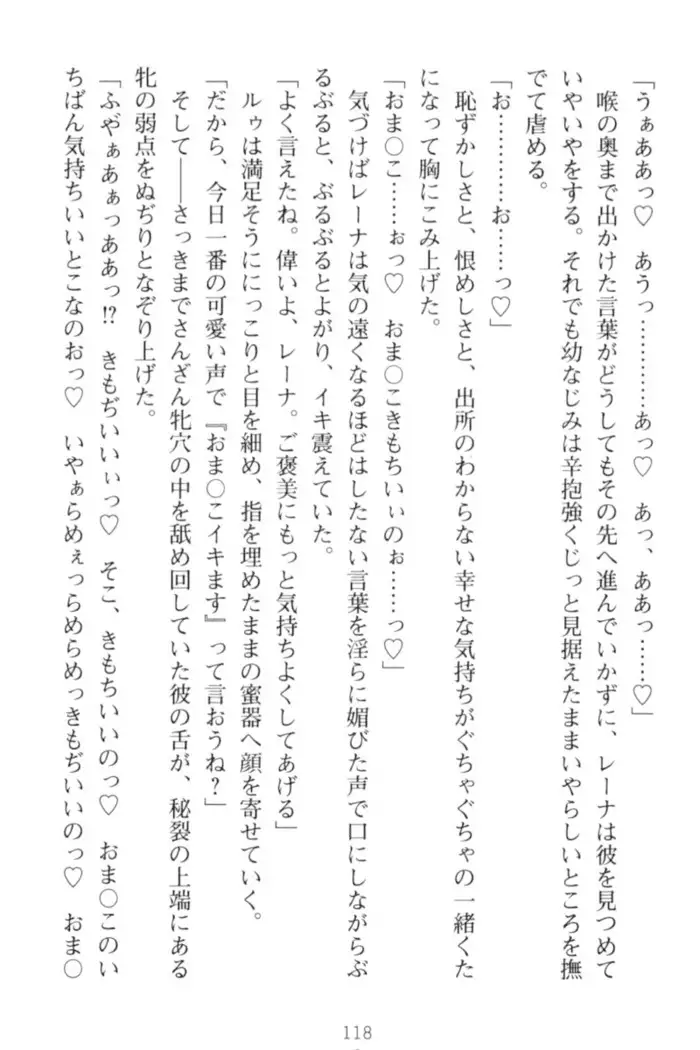 「うぁああっ♡　あうっ…………あっ♡　あっ、ああっ……♡」
喉の奥まで出かけた言葉がどうしてもその先へ進んでいかずに、レーナは彼を見つめて
いやいやをする。それでも幼なじみは辛抱強くじっと見据えたままいやらしいところを撫
でて虐める。
「お…………お……っ♡」
恥ずかしさと、恨めしさと、出所のわからない幸せな気持ちがぐちゃぐちゃの一緒くた
になって胸にこみ上げた。
「おま○こ……ぉっ♡　おま○こきもちいぃのぉ……っ♡」
気づけばレーナは気の遠くなるほどはしたない言葉を淫らに媚びた声で口にしながらぶ
るぶると、ぶるぶるとよがり、イキ震えていた。
「よく言えたね。偉いよ、レーナ。ご褒美にもっと気持ちよくしてあげる」
ルゥは満足そうににっこりと目を細め、指を埋めたままの蜜器へ顔を寄せていく。
「だから、今日一番の可愛い声で『おま○こイキます』って言おうね？」
そして――さっきまでさんざん牝穴の中を舐め回していた彼の舌が、秘裂の上端にある
牝の弱点をぬぢりとなぞり上げた。
「ふやぁあぁっああっ!?　きもぢいいぃっ♡　そこ、きもちいいのっ♡　おま○このい
ちばん気持ちいいとこなのおっ♡　いやぁらめぇっらめらめっきもぢいいのっ♡　おま○
118